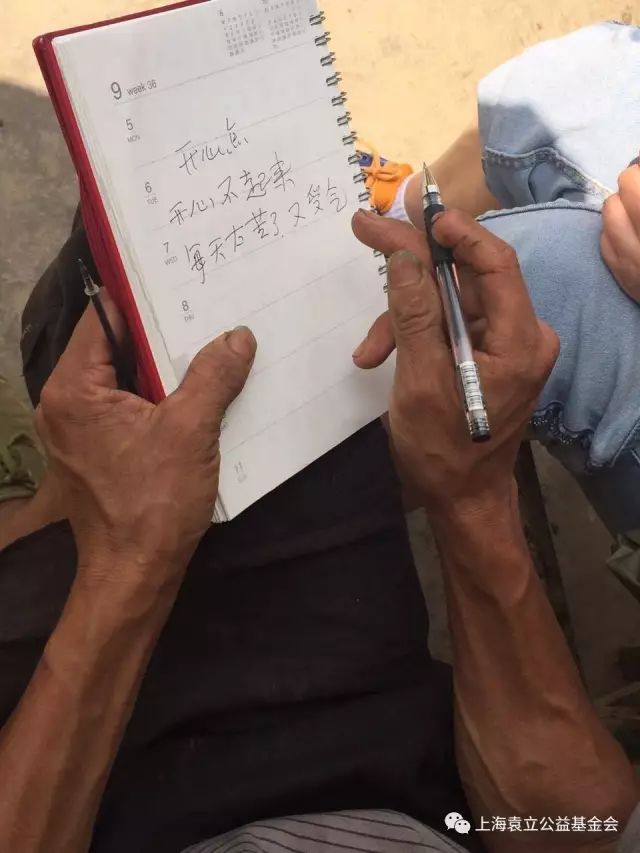 9 week 36
5
MON
开心点
6
TUE
开心不起来
7
WED
每天太苦了.又受
8
THU
11
上海袁立公益基金会